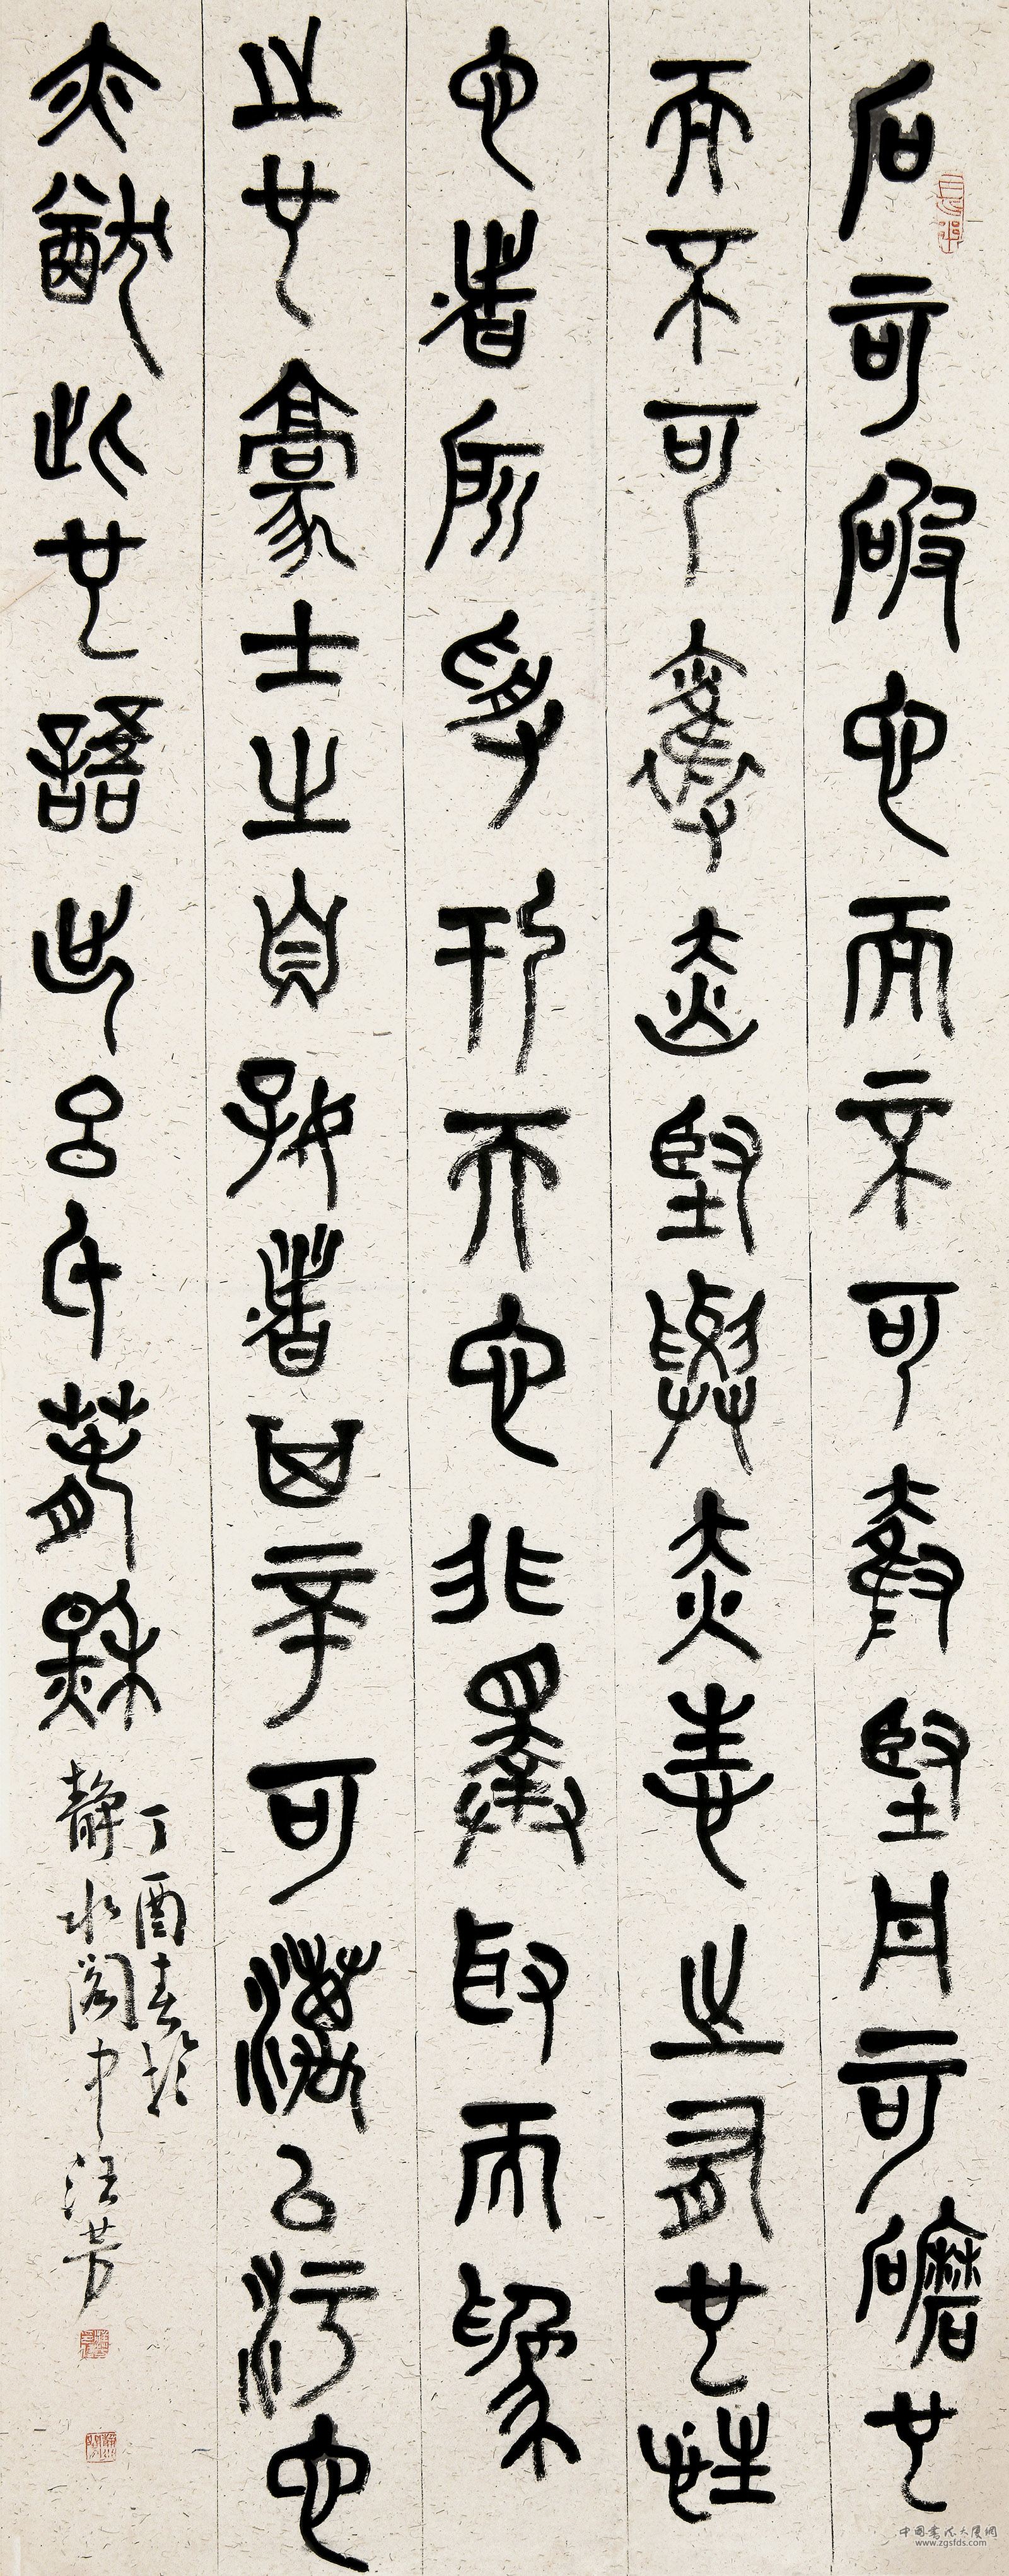 石可破也而不可奪堅丹可磨也
而不可奪赤堅與赤性之有也性
也者所受于天也非擇取而為
之也豪士之自好者其不可漫以污也
亦猶此也語出吕氏春秋
丁酉春於
靜水閣中汪芳
www.zgsfds.com